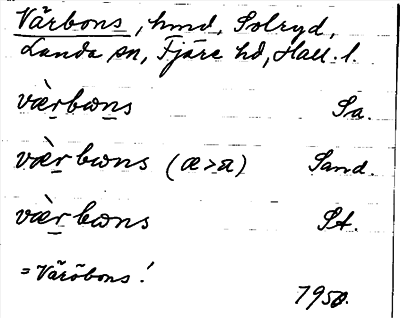 Vårbons, hmd, Solryd,
Landa sn, Fjäre hd, Hall. l.
væ̀rbωns Sa.
væ̀rbωns (æ>a) Sand.
væ̀rbωns St.
= Väröbons!
1950.